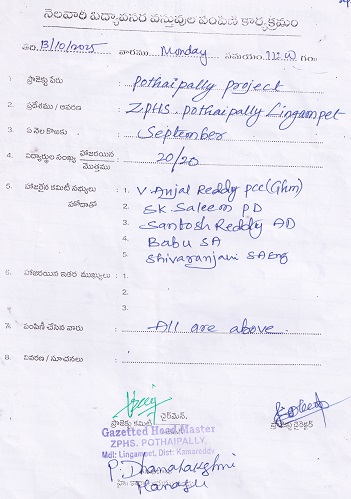 నెలవారీ విద్యావసర వస్తువుల పంపిణీ కార్యక్రమం
తేది. 13/10/2025 వారము Monday సమయం 11:00 గం॥
1. ప్రాజెక్టు పేరు : pothaipally project
2. ప్రదేశము / ఆవరణ : ZPHS. pothaipally Lingampet
3. ఏ నెల కొఱకు : September
4. విద్యార్థుల సంఖ్య హాజరయిన / మొత్తము : 20/20
5. హాజరైన కమిటీ సభ్యులు హోదాతో : 1. V. Anjal Reddy pcc (Ghm)
2. SK. Saleem PD
3. Santosh Reddy AD
4. Babu SA
5. Shivaranjani SA Eng
6. హాజరయిన ఇతర ముఖ్యులు : 1.
2.
3.
7. పంపిణీ చేసిన వారు : All are above.
8. వివరణ / సూచనలు :
ప్రాజెక్టు కమిటీ ఛైర్మెన్,
ప్రాజెక్టు డైరెక్టర్
Gazetted Head Master
ZPHS. POTHAIPALLY,
Mdl: Lingampet, Dist: Kamareddy